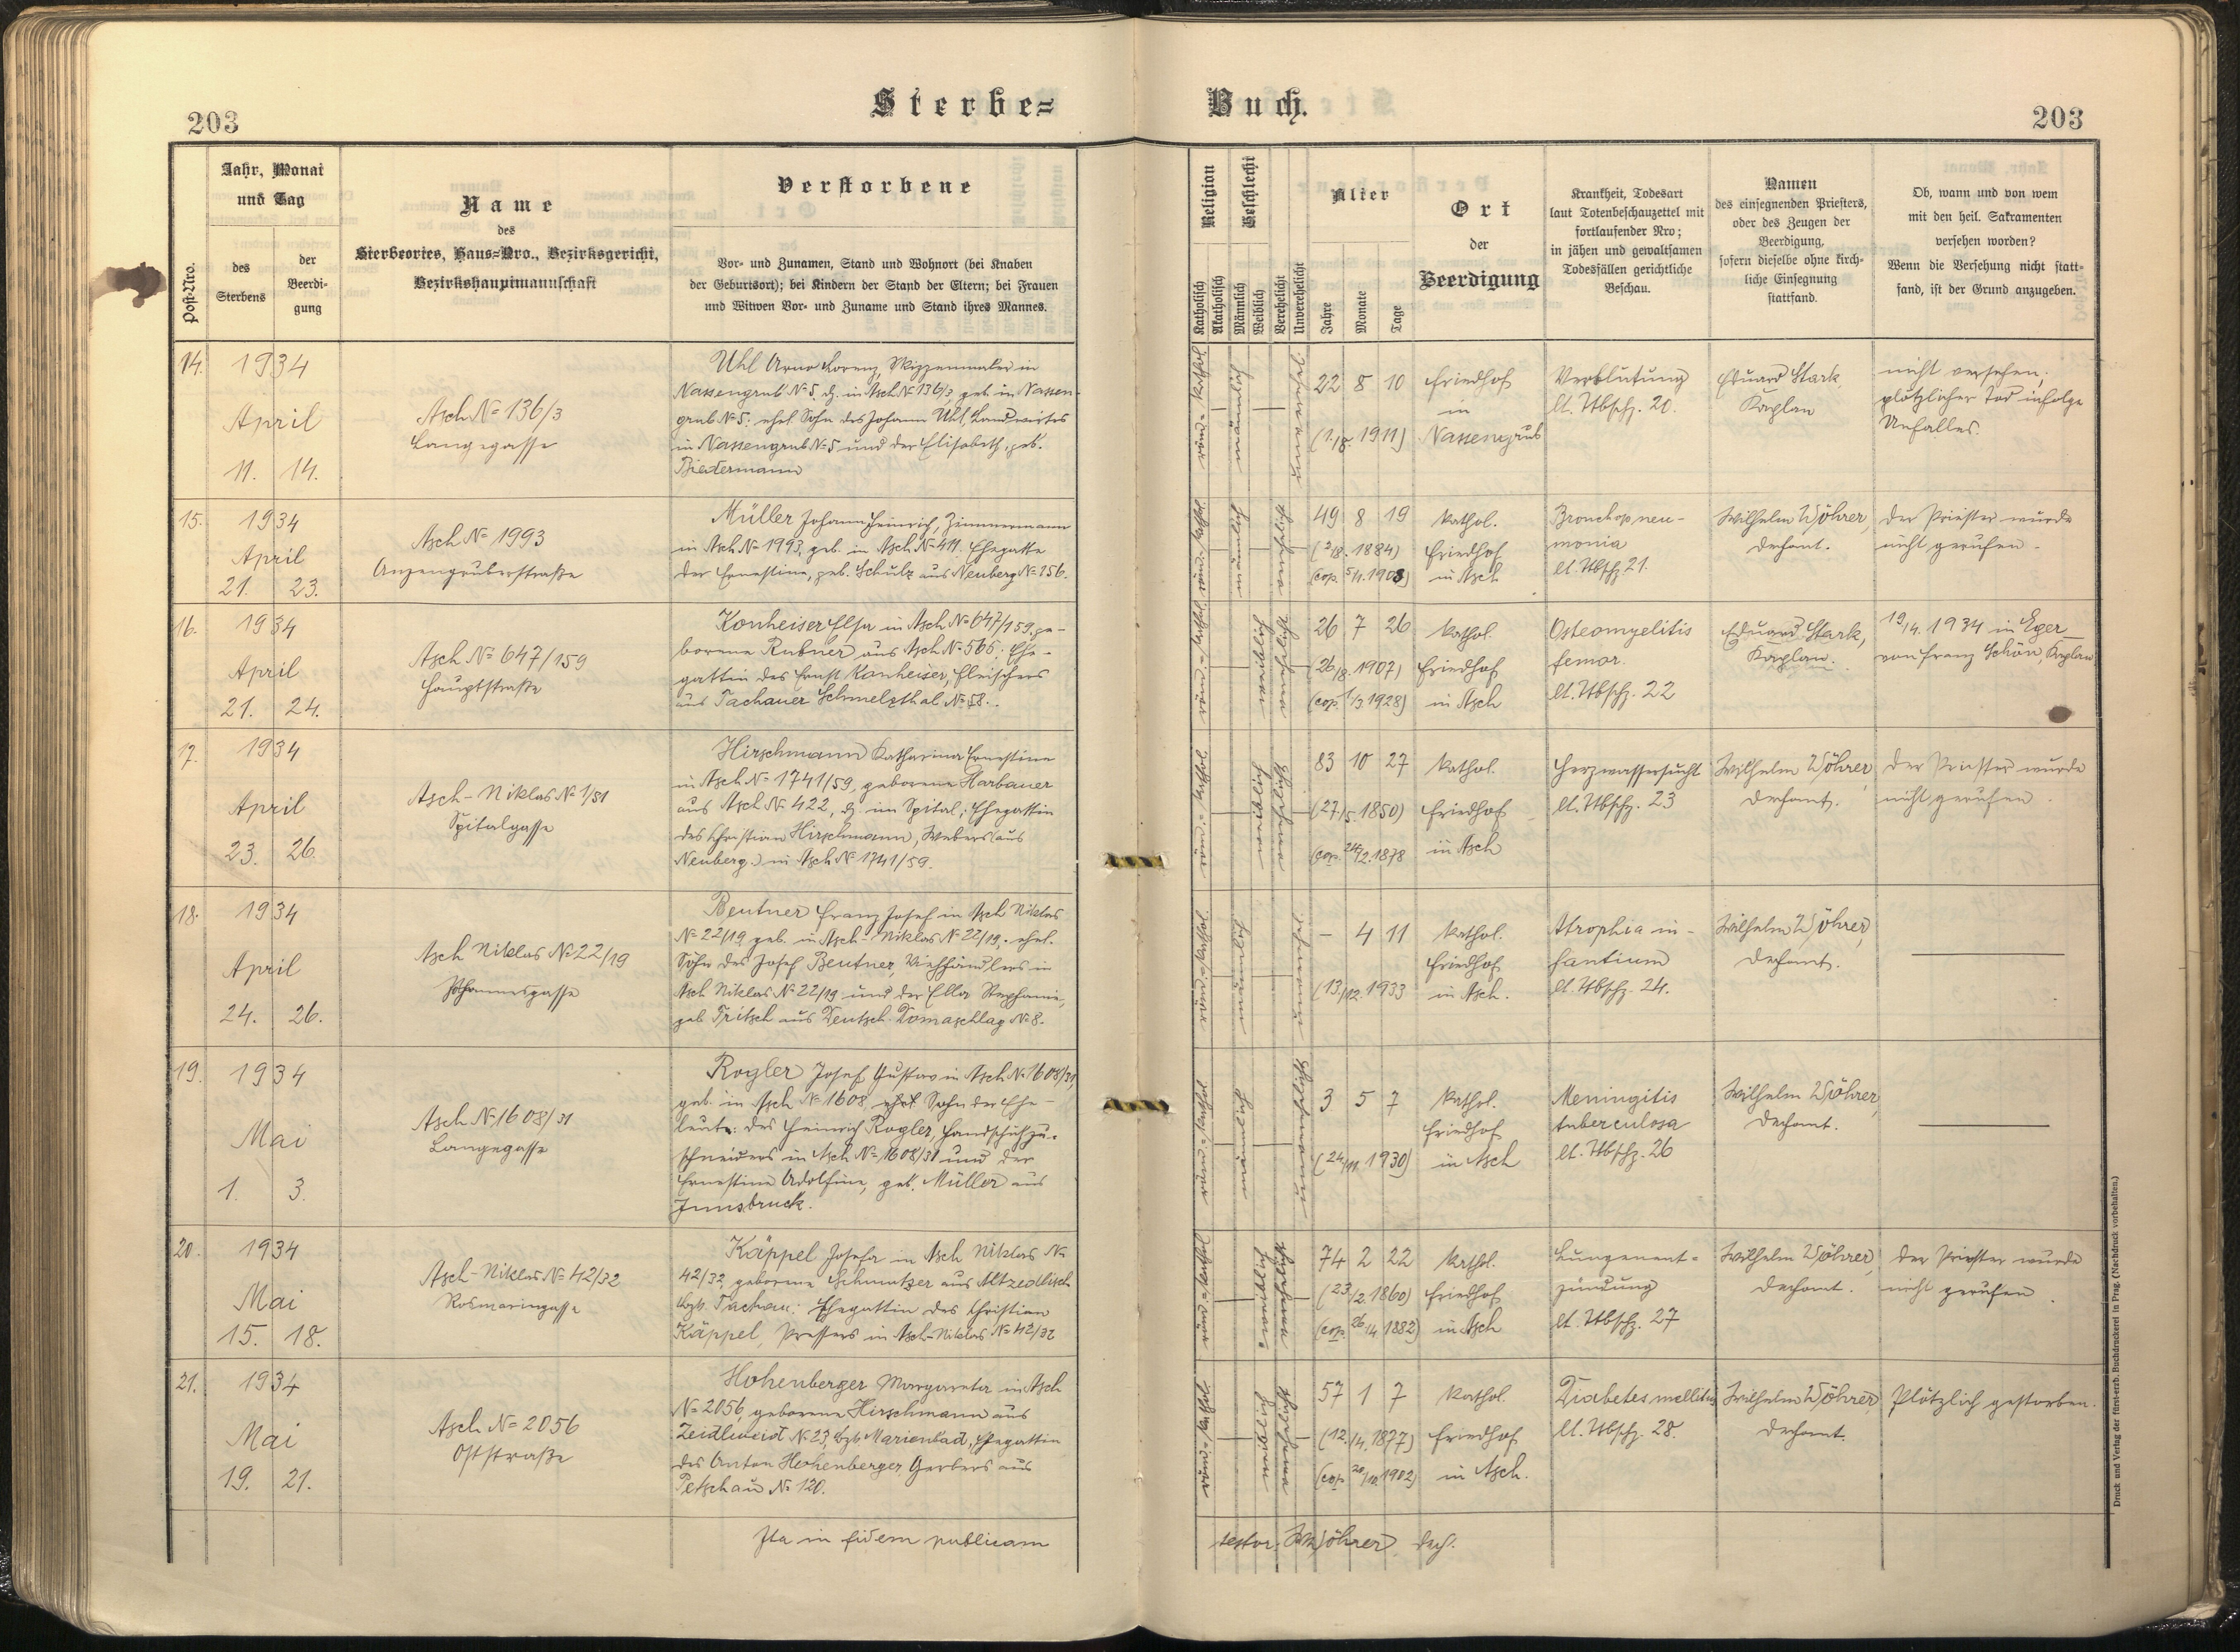 203
Sterbe=
Buch.
203
Post-Nro.
Jahr, Monat
und Tag
des
Sterbens
der
Beerdi-
gung
Name
des
Sterbeortes, Haus=Nro., Bezirksgericht,
Bezirkshauptmannschaft
Verstorbene
Vor- und Zunamen, Stand und Wohnort (bei Knaben
der Geburtsort); bei Kindern der Stand der Eltern; bei Frauen
und Witwen Vor- und Zuname und Stand ihres Mannes.
Religion
Katholisch
Akatholisch
Geschlecht
Männlich
Weiblich
Verehelicht
Unverehelicht
Alter
Jahre
Monate
Tage
Ort
der
Beerdigung
Krankheit, Todesart
laut Totenbeschauzettel mit
fortlaufender Nro;
in jähen und gewaltsamen
Todesfällen gerichtliche
Beschau.
Namen
des einsegnenden Priesters,
oder des Zeugen der
Beerdigung,
sofern dieselbe ohne kirch-
liche Einsegnung
stattfand.
Ob, wann und von wem
mit den heil. Sakramenten
versehen worden?
Wenn die Versehung nicht statt-
fand, ist der Grund anzugeben.
14.
1934
April
11. 14.
Asch No 136/3
Langegasse
Uhl Arno Lorenz, Skizzenmaler in
Nassengrub No 5, dz. in Asch No 136/3, geb. in Nassen-
grub No 5; ehel. Sohn des Johann Uhl, Landwirtes
in Nassengrub No 5 und der Elisabeth, geb.
Biedermann
22 8 10
(1./8. 1911)
Friedhof
in
Nassengrub
Verblutung
lt. Tbschz. 20.
Eduard Stark,
Kaplan
nicht versehen,
plötzlicher Tod infolge
Unfalles.
15.
1934
April
21. 23.
Asch No 1993
Anzengruberstraße
Müller Johann Heinrich, Zimmermann
in Asch No 1993, geb. in Asch No 411. Ehegatte
der Ernestine, geb. Schulz aus Neuberg No 156.
49 8 19
(2/8. 1884)
(cop. 5/11. 1908)
kathol.
Friedhof
in Asch
Bronchopneu-
monia
lt. Tbschz 21.
Wilhelm Wöhrer,
Dechant.
Der Priester wurde
nicht gerufen.
16.
1934
April
21. 24.
Asch No 647/159
Hauptstraße
Konheiser Elsa in Asch No 647/159, ge-
borene Rubner aus Asch No 566. Ehe-
gattin des Ernst Konheiser, Fleischers
aus Tachauer Schmelzthal No 58.
26 7 26
(26/8. 1907)
(cop. 1/3 1928)
kathol.
Friedhof
in Asch
Osteomyelitis
femor.
lt. Tbschz. 22
Eduard Stark,
Kaplan.
19/4. 1934 in Eger
von Franz Schön, Kaplan
17.
1934
April
23. 26.
Asch-Niklas No 1/51
Spitalgasse
Hirschmann Katharina Ernestine
in Asch No 1741/59, geborene Harbauer
aus Asch No 422, dz. im Spital; Ehegattin
des Christian Hirschmann, Webers (aus
Neuberg.) in Asch No 1741/59.
83 10 27
(27./5. 1850)
(cop. 24/2. 1878
kathol.
Friedhof
in Asch
Herzwassersucht
lt. Tbschz. 23
Wilhelm Wöhrer,
Dechant.
Der Priester wurde
nicht gerufen.
18.
1934
April
24. 26.
Asch Niklas No 22/19
Johannesgasse
Beutner Franz Josef in Asch Niklas
No 22/19, geb. in Asch-Niklas No 22/19. ehel.
Sohn des Josef Beutner, Viehhändlers in
Asch Niklas No 22/19 und der Ella Stephanie,
geb. Fritsch aus Deutsch. Domaschlag No 8.
– 4 11
(13./12. 1933
kathol.
Friedhof
in Asch.
Atrophia in-
fantium
lt. Tbschz. 24.
Wilhelm Wöhrer,
Dechant.
19.
1934
Mai
1. 3.
Asch No 1608/31
Langegasse
Rogler Josef Gustav in Asch No 1608/31
geb. in Asch No 1608, ehel. Sohn der Ehe-
leute: des Heinrich Rogler, Handschuhzu-
schneiders in Asch No 1608/31 und der
Ernestine Adolfine, geb. Müller aus
Innsbruck.
3 5 7
(24/11. 1930)
kathol.
Friedhof
in Asch
Meningitis
tuberculosa
lt. Tbschz. 26
Wilhelm Wöhrer,
Dechant.
20.
1934
Mai
15. 18.
Asch-Niklas No 42/32
Rosmaringasse
Käppel Josefa in Asch Niklas No
42/32, geborene Schmutzer aus Altzedlisch
Bzh. Tachau: Ehegattin des Christian
Käppel, Pressers in Asch-Niklas No 42/32
74 2 22
(23./2. 1860)
(cop. 26/4 1882)
kathol.
Friedhof
in Asch
Lungenent-
zündung
lt. Tbschz. 27
Wilhelm Wöhrer,
Dechant.
Der Priester wurde
nicht gerufen.
21.
1934
Mai
19. 21.
Asch No 2056
Oststraße
Hohenberger Margareta in Asch
No 2056, geborene Hirschmann aus
Zeidlweid No 23, Bzh. Marienbad, Ehegattin
des Anton Hohenberger, Gerbers aus
Petschau No 120.
57 1 7
(12./4. 1877)
(cop. 20/10. 1902)
kathol.
Friedhof
in Asch.
Diabetes mellitus
lt. Tbschz. 28.
Wilhelm Wöhrer,
Dechant.
Plötzlich gestorben.
Ita in fidem publicam
testor: W. Wöhrer, Dech.
Druck und Verlag der fürst-erzb. Buchdruckerei in Prag. (Nachdruck vorbehalten.)